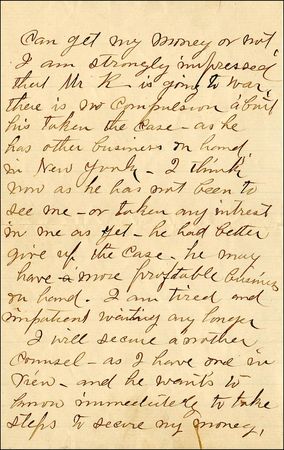 Can get my money or not
I am strongly impressed
that Mr K - is going to war,
there is no Compulsion about
his taken the Case - as he
has other business on hand
in New York - I think
now as he has not been to
see me - or taken any intrest
in me as yet - he had better
give up the Case - he may
have a more profitable business
on hand. I am tired and
impatient waiting any longer
I will secure another
Counsel - as I have one in
view - and he wants to
know immediately to take
steps to secure my money,